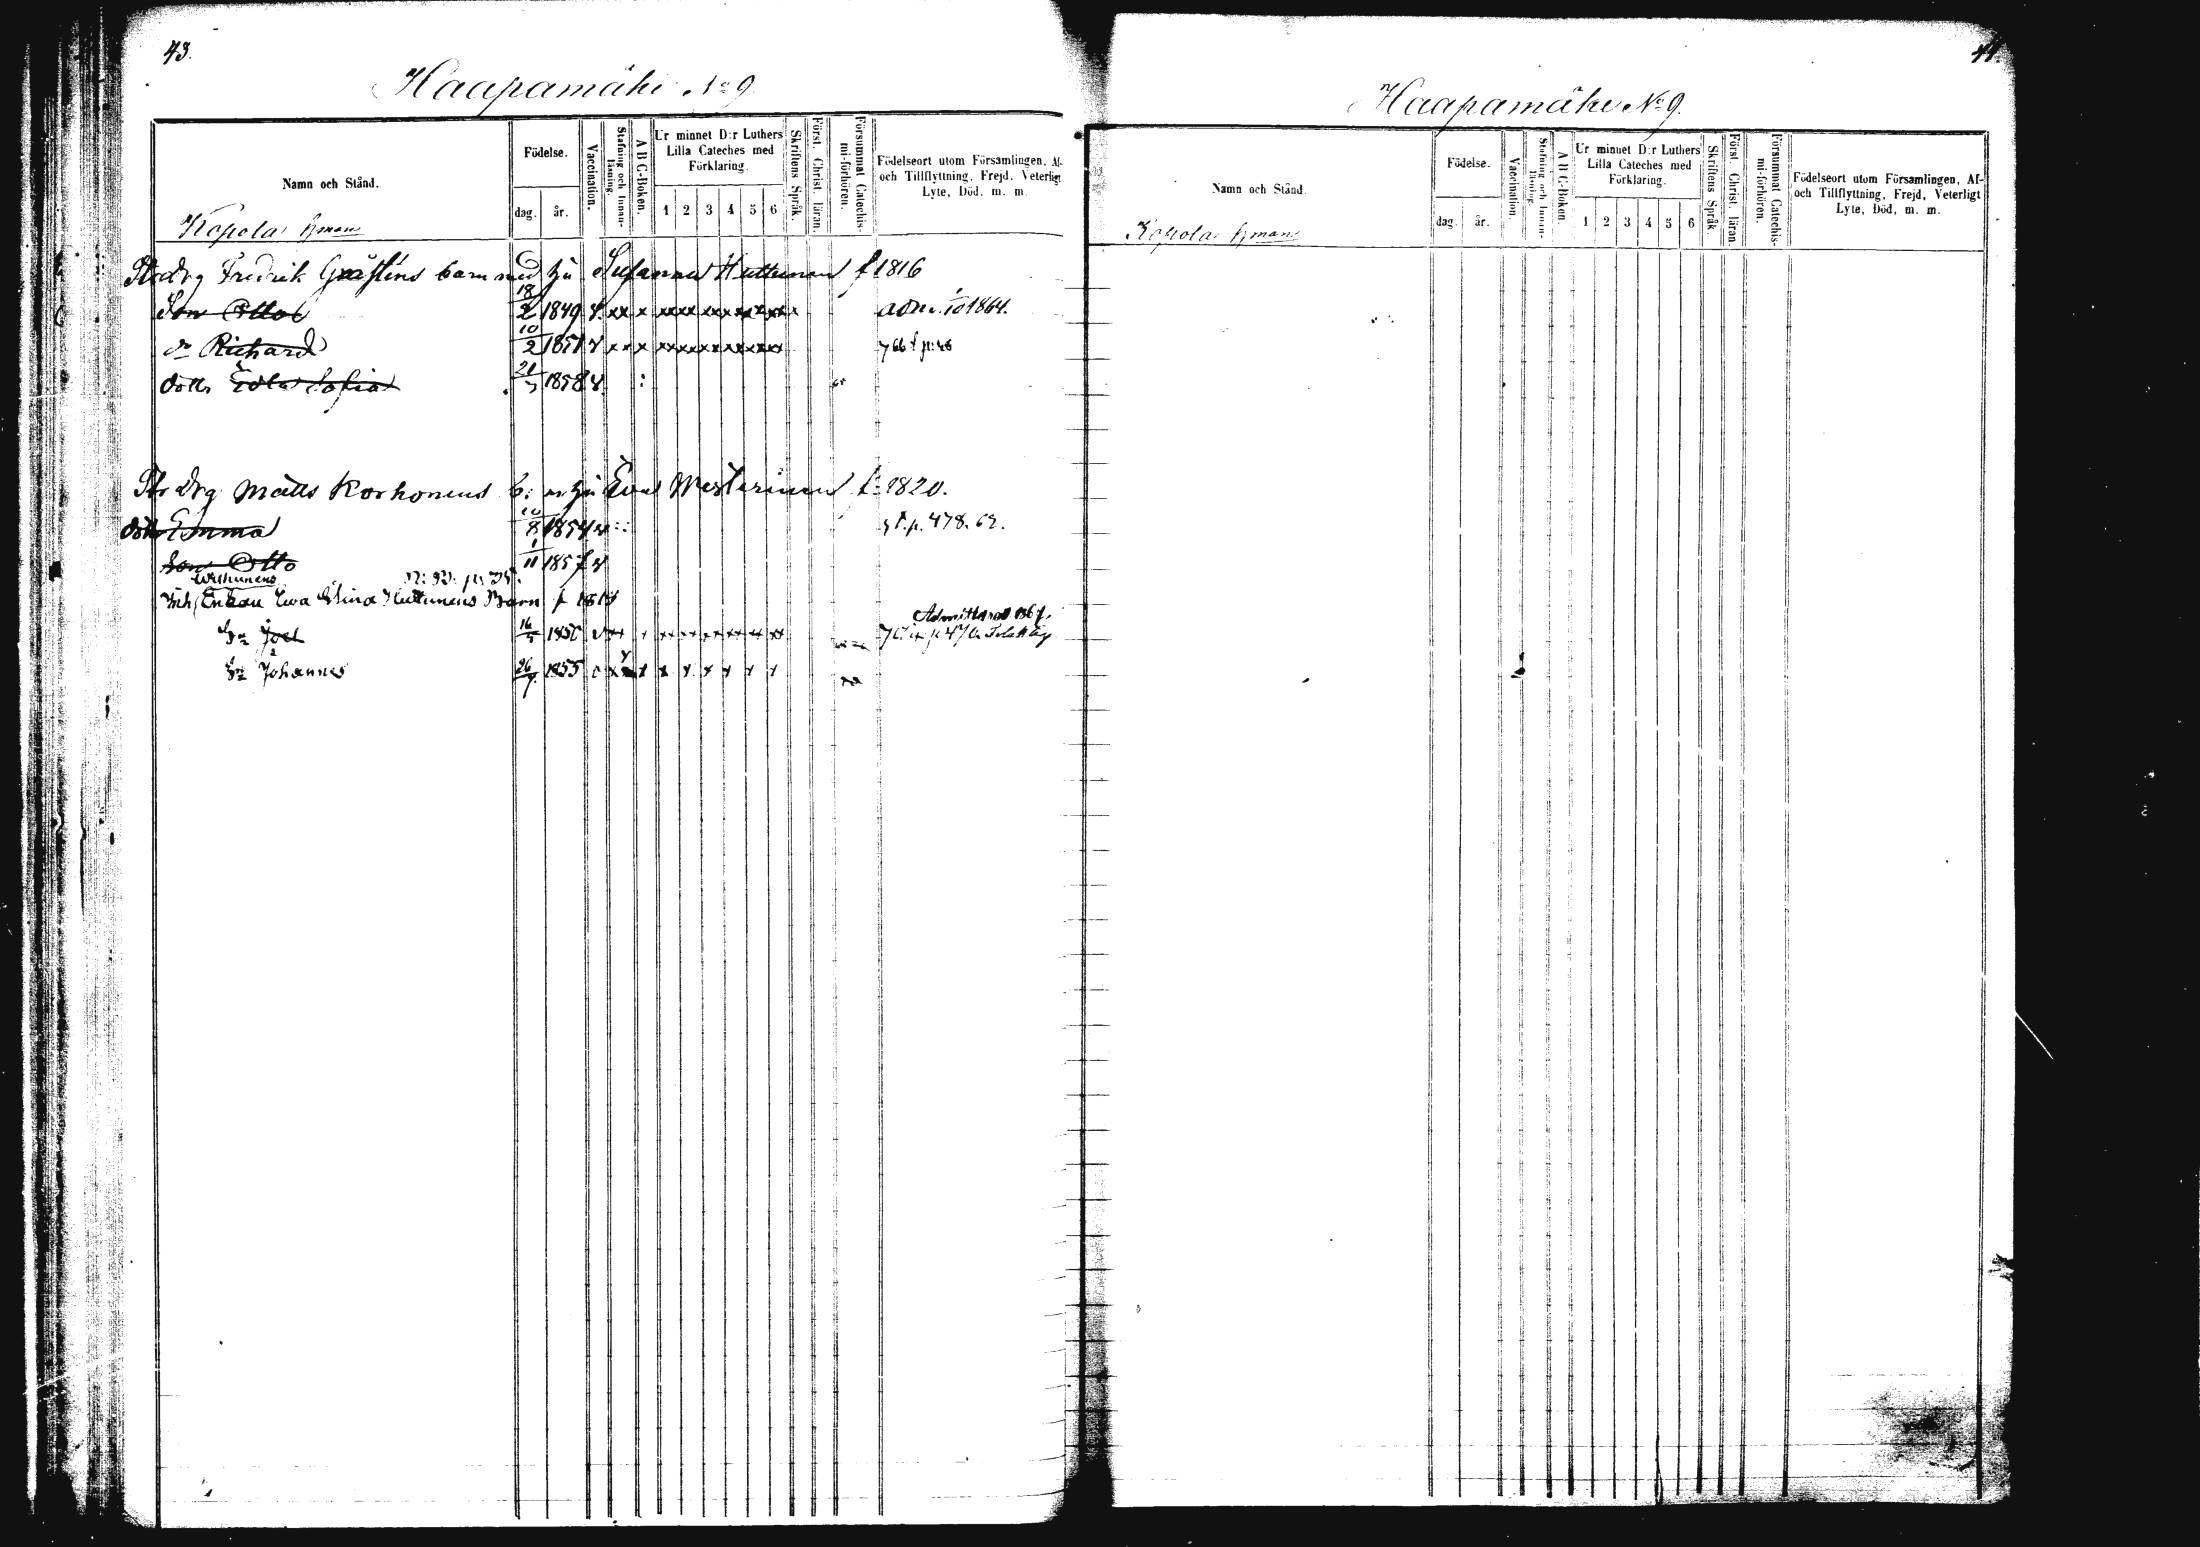 43.
Haapamäki No 9
Namn och Stånd.
Födelse.
dag.
år.
Vaccination.
Stafning och Innan-läsning.
A B C-Boken.
Ur minnet D:r Luthers Lilla Cateches med Förklaring.
1 2 3 4 5 6
Skriftens Språk.
Först. Christ. läran.
Försummat Catechis-mi-förhören.
Födelseort utom Församlingen, Af-
och Tillflyttning, Frejd, Veterligt
Lyte, Död, m. m.
Kopola
Drg Fredrik barn med hu Susanna Huttunen f 1816
Son Otto 18/2 1849 adm. 1864.
Richard 10/2 1851
dottr Edla Sofia 21/7 1858
Drg Matts Korhonens b: m hu Eva Westerinen f. 1820.
dottr Emma 10/8 1854 p. 478.
Son Otto 1/11 1857
Inh Enkan Ewa Stina Huttunens Barn f
Joel 16/5 1850 Admitterad
Johannes 26/7 1855
44.
Haapamäki No 9.
Namn och Stånd.
Födelse.
dag.
år.
Vaccination.
Stafning och Innan-läsning.
A B C-Boken.
Ur minnet D:r Luthers Lilla Cateches med Förklaring.
1 2 3 4 5 6
Skriftens Språk.
Först. Christ. läran.
Försummat Catechis-mi-förhören.
Födelseort utom Församlingen, Af-
och Tillflyttning, Frejd, Veterligt
Lyte, Död, m. m.
Kopola